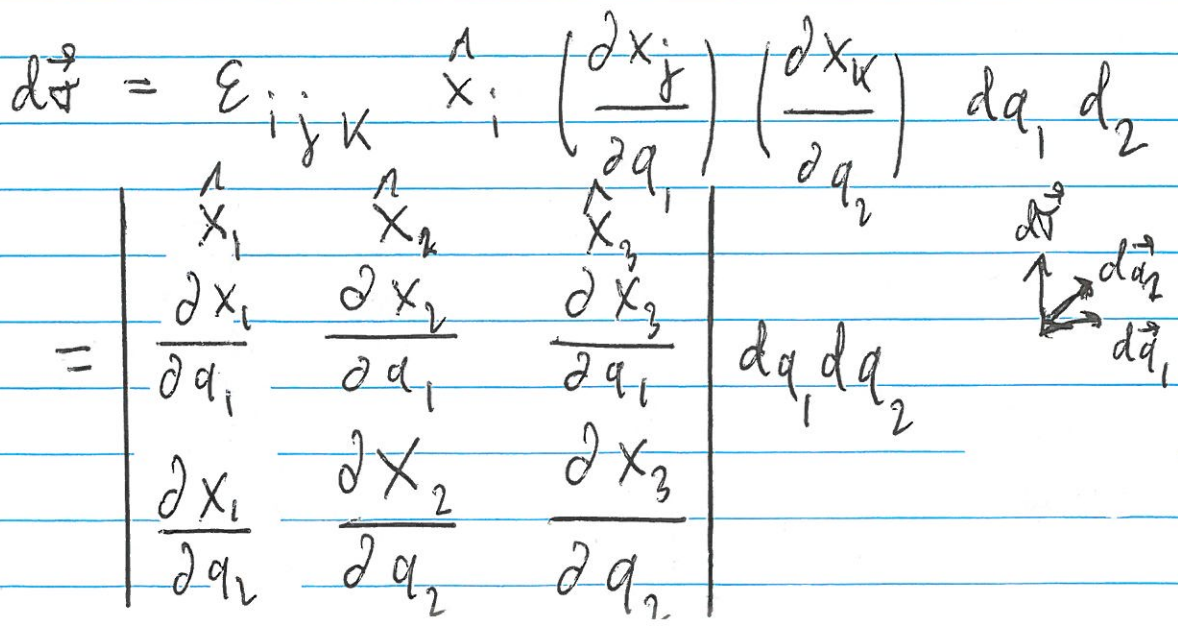 d\vec{\sigma} = ε_{ijk} \hat{x}_i (∂x_j/∂q_1) (∂x_k/∂q_2) dq_1 d_2
= | \hat{x}_1 \hat{x}_2 \hat{x}_3 |
| ∂x_1/∂q_1 ∂x_2/∂q_1 ∂x_3/∂q_1 | dq_1 dq_2
| ∂x_1/∂q_2 ∂x_2/∂q_2 ∂x_3/∂q_2 |
d\vec{\sigma}
d\vec{q}_2
d\vec{q}_1